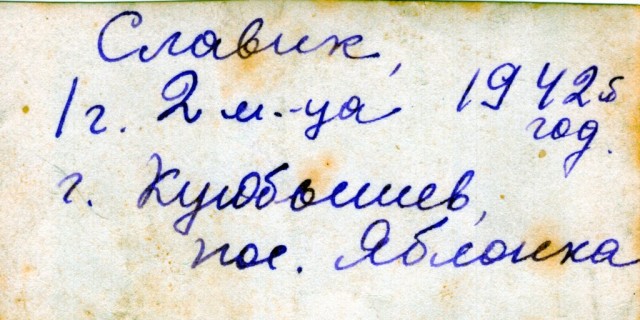 Славик,
1 г. 2 м-ца 1942 б
год.
г. Куйбышев,
пос. Яблонка